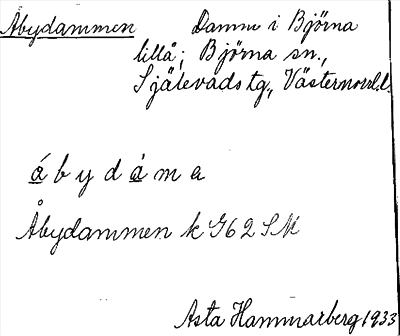 Åbydammen Damm i Björna
lillå; Björna sn.,
Själevads tg, Västernorrl. l.
å b y d å m a
Åbydammen k G62 SM
Asta Hammarberg 1933